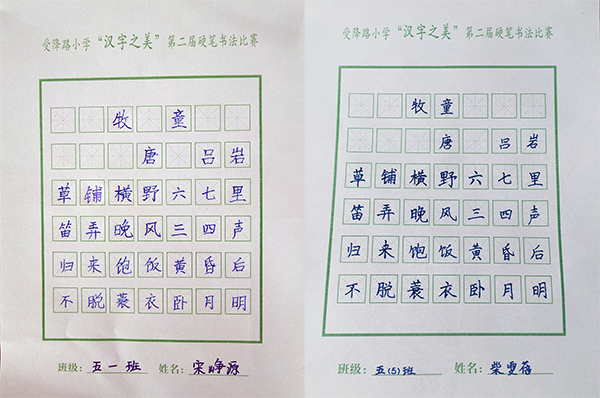 受降路小学“汉字之美”第二届硬笔书法比赛
牧童
唐 吕岩
草铺横野六七里
笛弄晚风三四声
归来饱饭黄昏后
不脱蓑衣卧月明
班级：五一班 姓名：宋峥源
受降路小学“汉字之美”第二届硬笔书法比赛
牧童
唐 吕岩
草铺横野六七里
笛弄晚风三四声
归来饱饭黄昏后
不脱蓑衣卧月明
班级：五（5）班 姓名：柴雯蓓